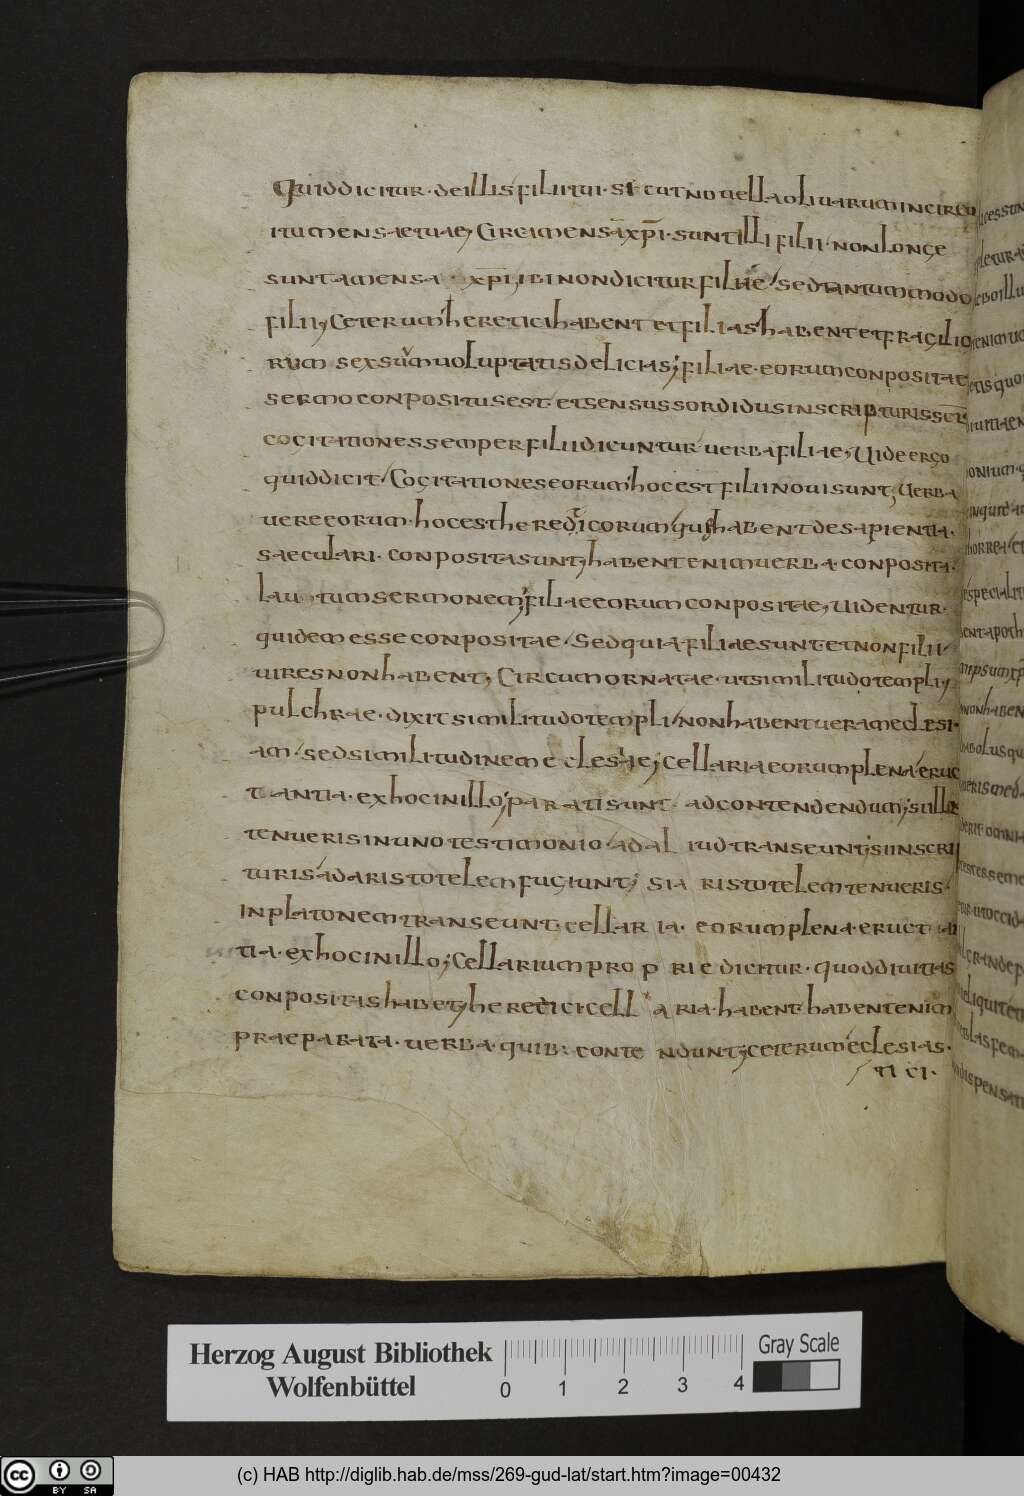 Quiddicitur · deillisfiliitui · sicutnouellaoliuarumincircu
itumensaetuae; Circamensāxp̄i · suntillifilii · nonlonge
suntamensa · xp̄i; ibinondiciturfiliae / sedtantummodo
filii; Ceterum hereticihabentetfilias habentetfragilio
rum sexsuumuoluptatisdelicias; filiae · eorumconpositae
sermoconpositusest · etsensussordidusinscripturisscis
cogitationessemperfiliidicuntur uerbafiliae; Uideergo
quiddicit / Cogitationeseorum hocestfiliinouisunt; Uerba
uereeorum · hocesthereticorumquihabentdesapientia ·
saeculari · conpositasunt; habentenimuerba · conposita ·
lau tumsermonem; filiaeeorumconpositae; Uidentur ·
quidemesseconpositae · Sedquiafiliaesuntetnonfilii /
uiresnonhabent; Circumornatae · utsimilitudotempli;
pulchrae · dixitsimilitudotempli / nonhabentueramecclesi ·
am / sedsimilitudinemecclesiae; Cellariaeorumplena eruc
tantia · exhocinillo; paratisunt · adcontendendum; sillos
tenuerisinunotestimonio / adal iudtranseunt; siinscrip
turis adaristotelemfugiunt; sia ristotelemtenueris ·
inplatonemtranseunt · cellar ia · eorumplena · eruct an
tia · exhocinillo; Cellariumpro p rie dicitur · quoddiuitias
conpositashabet; heretici · cell aria · habent · habentenim
praeparata · uerba · quib: conte ndunt; ceterum eclesias ·
/ ti ci ·
Herzog August Bibliothek
Wolfenbüttel
0 1 2 3 4
Gray Scale
cc BY SA
(c) HAB http://diglib.hab.de/mss/269-gud-lat/start.htm?image=00432